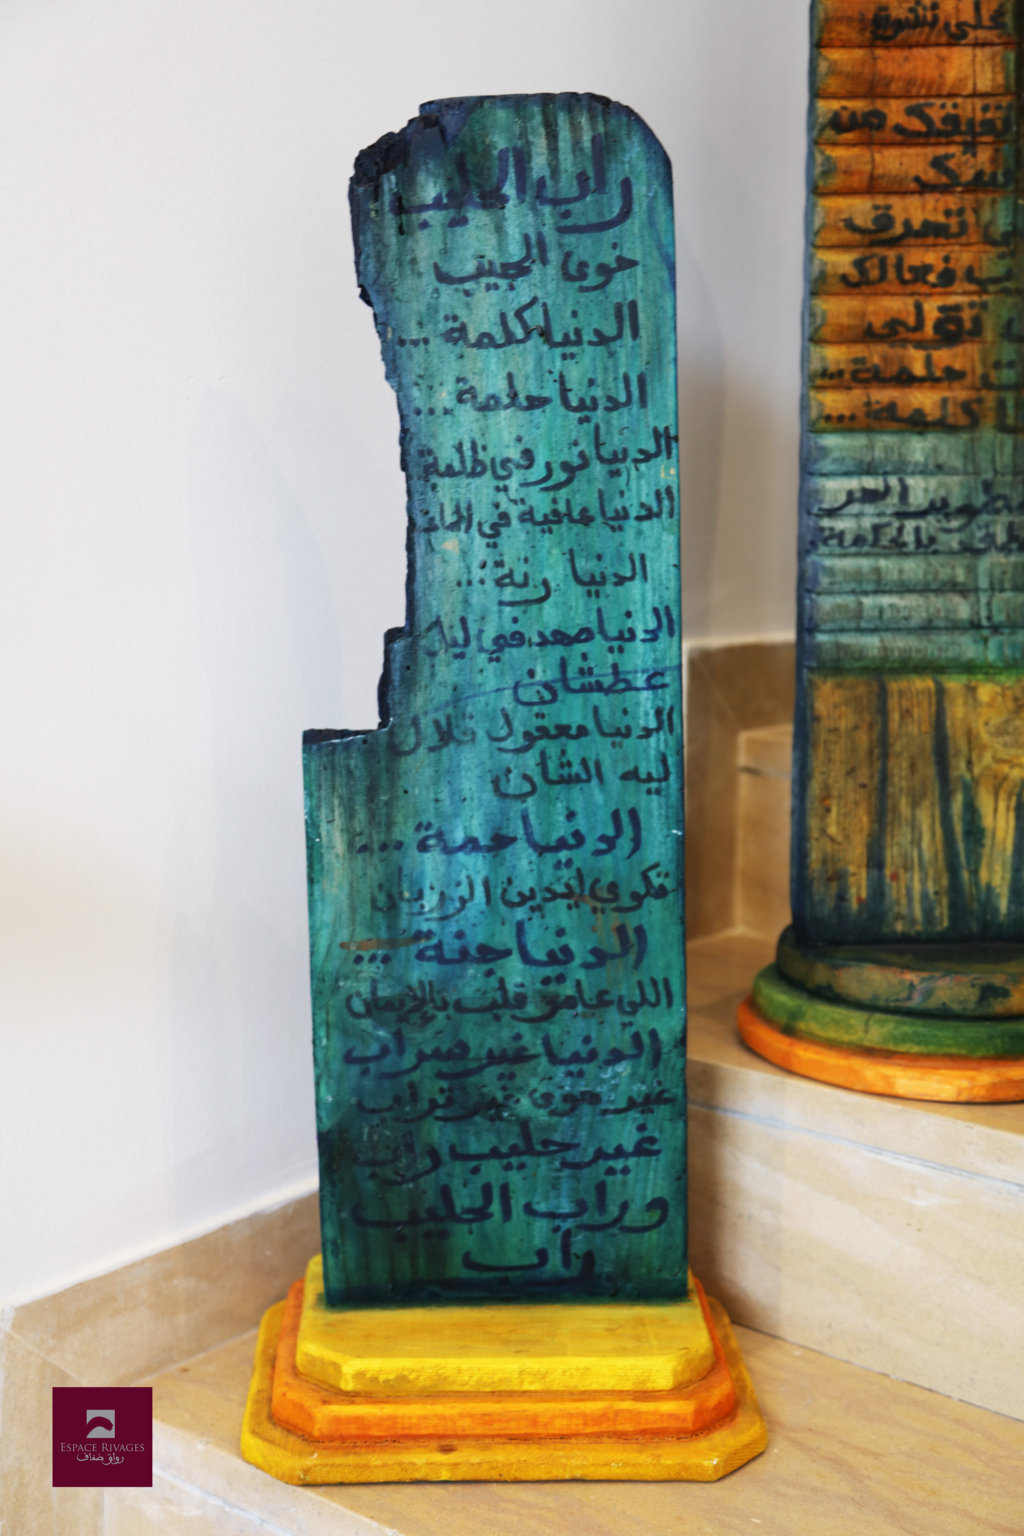 راب الحليب
خوى الجيب
الدنيا كلمة ...
الدنيا حلمة ...
الدنيا نور في ظلمة
الدنيا عافية في
الدنيا رنة ...
الدنيا صهد في ليل
عطشان
الدنيا معقول تلال
ليه الشان
الدنيا حمة ...
تكوي ايدين الزربان
الدنيا جنة ...
اللي عامر قلب بالإيمان
الدنيا غير سراب
غير هوى غير تراب
غير حليب راب
وراب الحليب
راب
على نشوة
تفيقك من
تحرق
فعالك
تولي
حلمة ...
كلمة ...
بالحكمة
ESPACE RIVAGES
رواق ضفاف